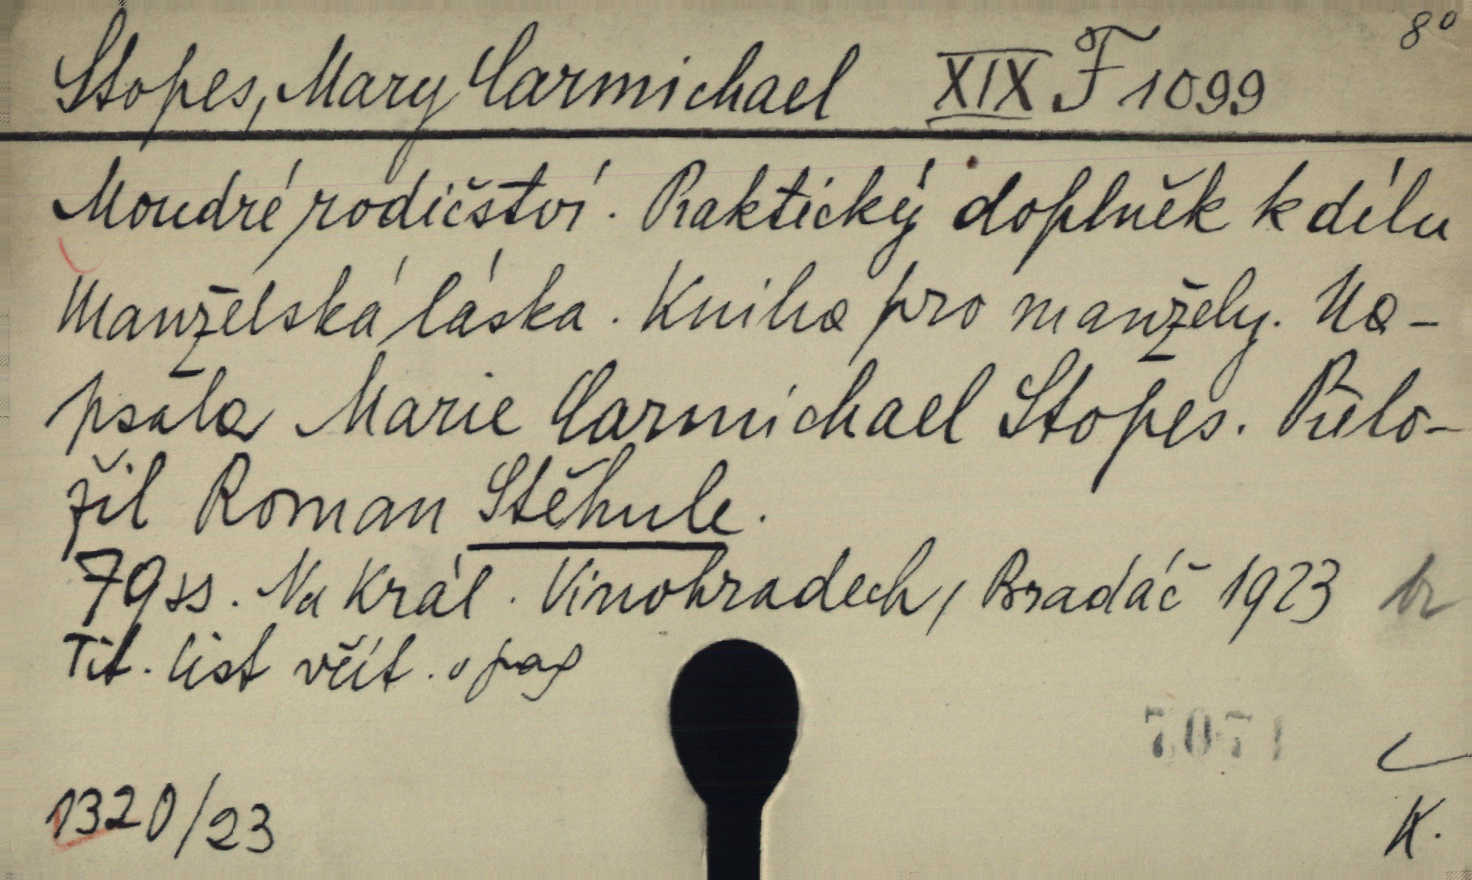 8°
Stopes, Mary Carmichael XIX F 1099
Moudré rodičství. Praktický doplněk k dílu
Manželská láska. Kniha pro manžely. Na-
psala Marie Carmichael Stopes. Přelo-
žil Roman Stěhule.
79 ss. Na Král. Vinohradech, Bradáč 1923 br
Tit. list včít. v pag
7071
1320/23
K.